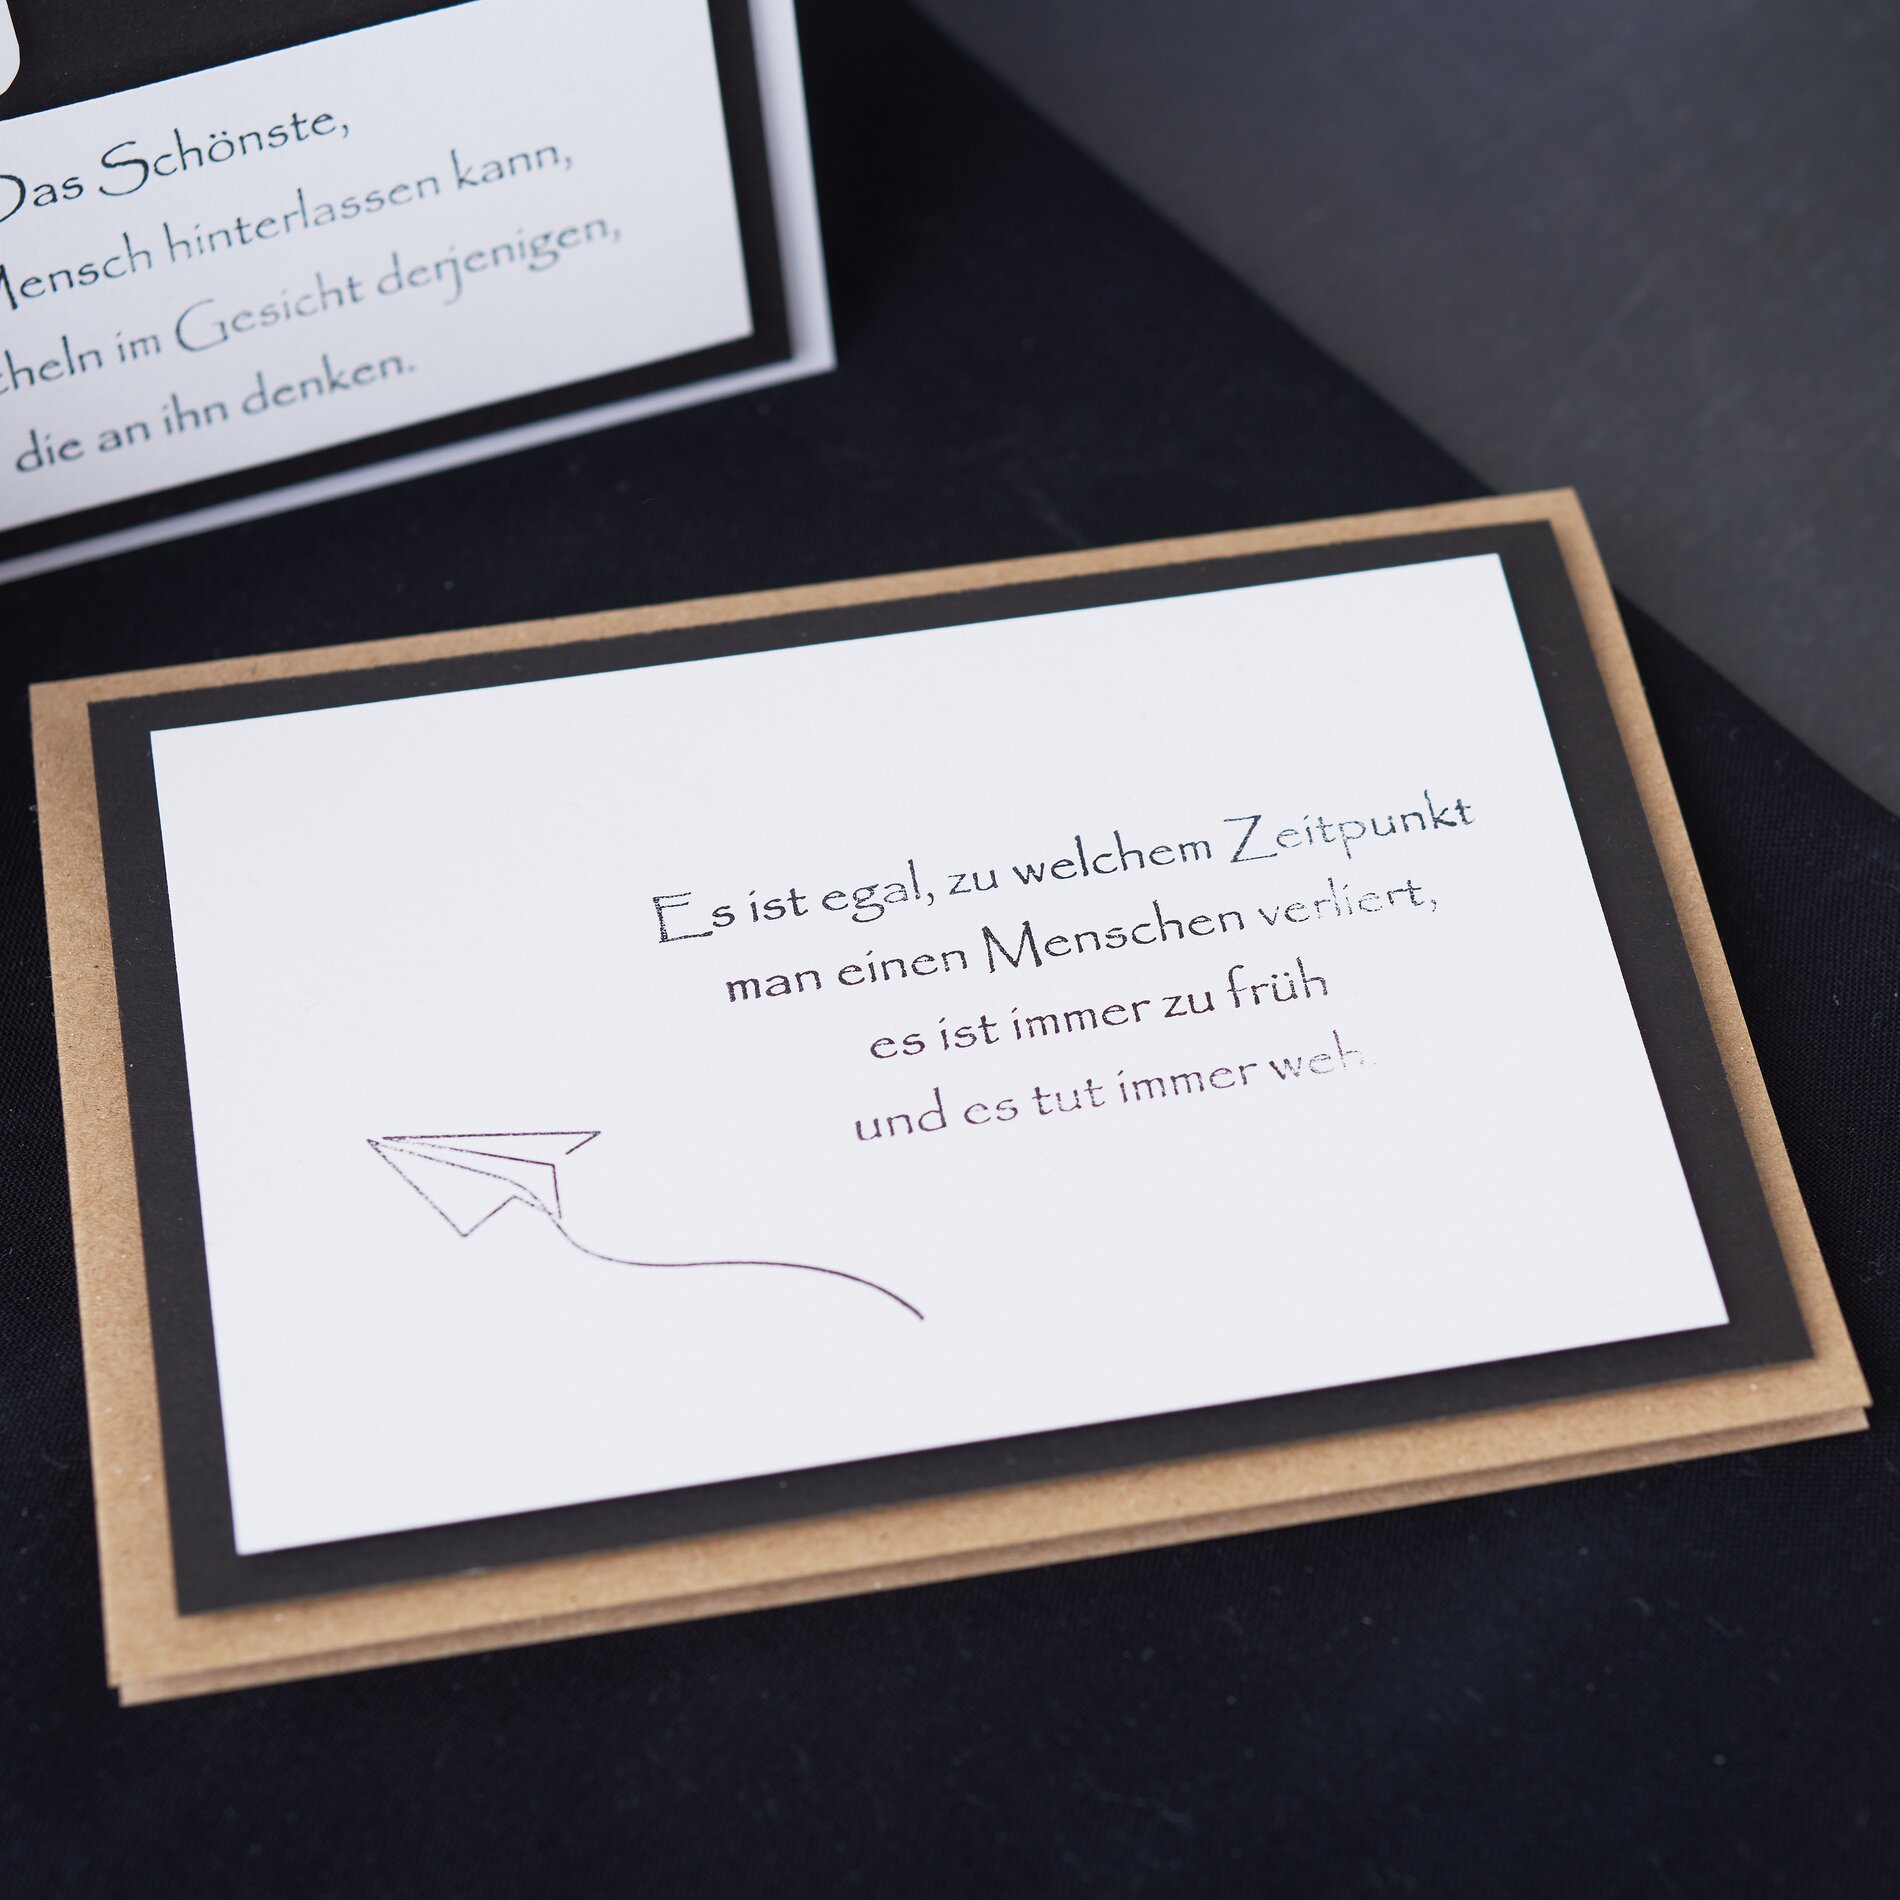 Das Schönste,
Mensch hinterlassen kann,
im Gesicht derjenigen,
die an ihn denken.
Es ist egal, zu welchem Zeitpunkt
man einen Menschen verliert,
es ist immer zu früh
und es tut immer weh.